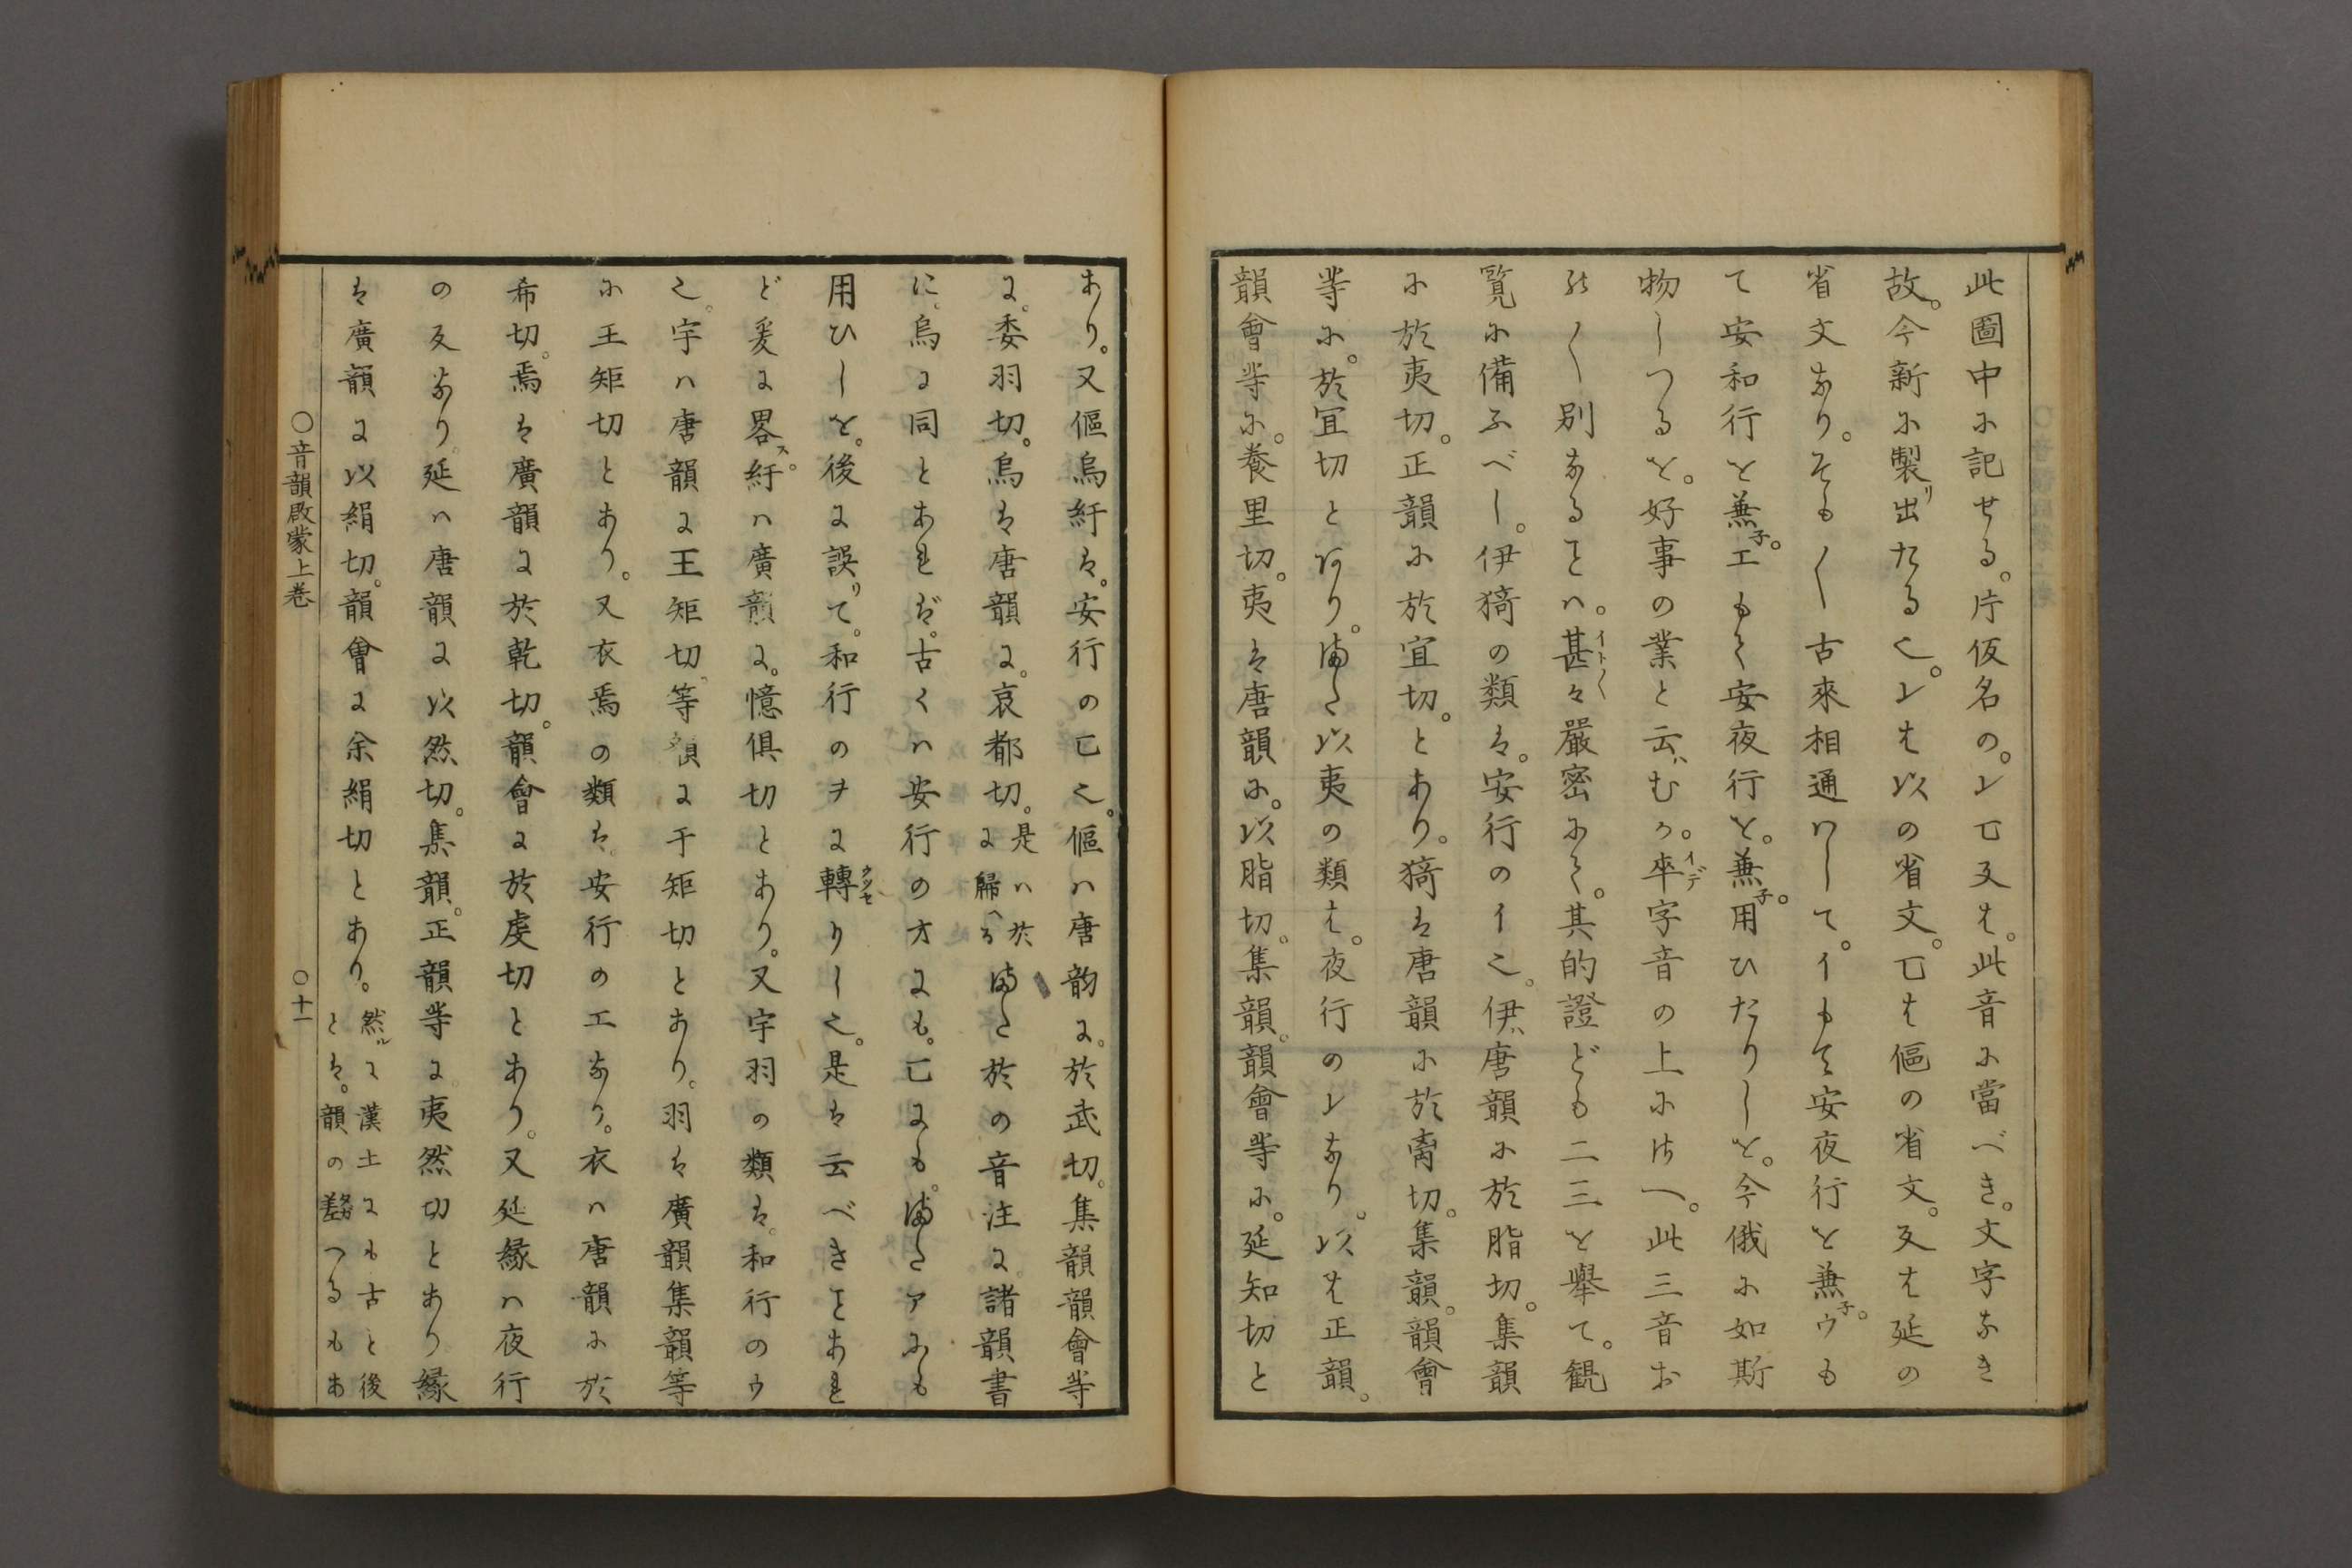 此圖中に記せる。片仮名の。レ匸又は。此音に當べき。文字なき
故。今新に製リ出たる也。レは以の省文。匸は傴の省文。又は延の
省文なり。そも〳〵古來相通はして。イもて安夜行を兼子。ウも
て安和行を兼子。エもて安夜行を。兼子。用ひたりしを。今俄に如斯
物しつるを。好事の業と云バむか。卒イデ字音の上にけへ。此三音お
のれ〳〵別なることハ。甚々イト〳〵嚴密にて。其的證ども二三を擧て。観
覧に備ふべし。伊猗の類は。安行のイ也。伊バ唐韻に於脂切。集韻
に於夷切。正韻に於宜切。とあり。猗は唐韻に於离切。集韻。韻會
等に。於宜切とあり。また以夷の類は。夜行のレなり。以は正韻。
韻會等に。養里切。夷は唐韻に。以脂切。集韻。韻會等に。延知切と
あり。又傴烏紆は。安行の匸也。傴ハ唐韵に。於武切。集韻韻會等
に。委羽切。烏は唐韻に。哀都切。是ハ於に歸へるまた於の音注に諸韻書
に。烏に同とあれば。古くハ安行のオにも。匸にも。またアにも
用ひしを。後に誤リて。和行のヲに轉ウツセりし也。是は云べきことあれ
ど爰に畧ス。紆ハ廣韻に。憶俱切とあり。又宇羽の類は。和行のウ
也。宇ハ唐韻に王矩切、等韻に于矩切とあり。羽は廣韻集韻等
に王矩切とあり。又衣焉の類は。安行のエなり。衣ハ唐韻に於
希切。焉は廣韻に於乾切。韻會に於虔切とあり。又延縁ハ夜行
の又なり。延ハ唐韻に以然切。集韻。正韻等に夷然切とあり縁
は廣韻に以絹切。韻會に余絹切とあり。然ルに漢土にも古と後とは。韻の差つるもあ
〇音韻啟蒙上卷
〇十一